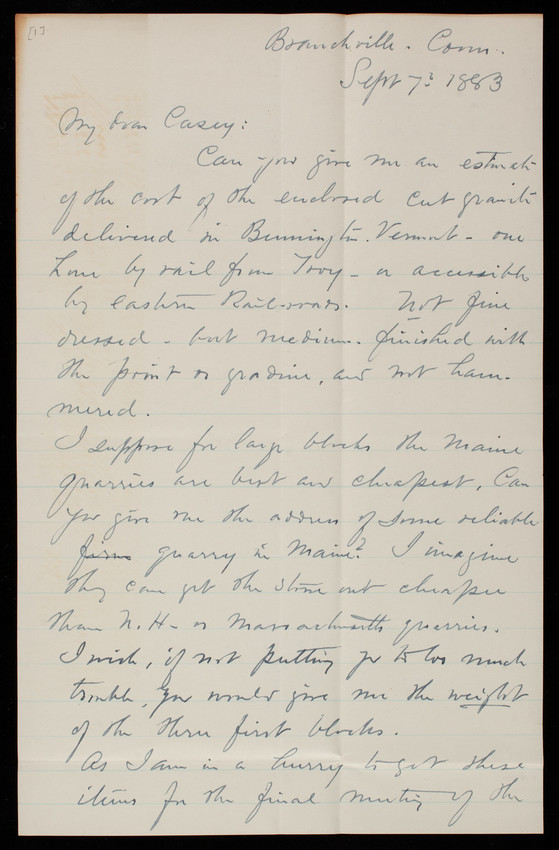 [1]
Branchville. Conn.
Sept 7: 1883
My dear Casey:
Can you give me an estimate
of the cost of the enclosed cut granite
delivered in Bennington. Vermont - one
hour by rail from Troy - or accessible
by eastern Rail-roads. Not fine
dressed - but medium. finished with
the point or gradine, and not ham-
mered.
I suppose for large blocks the Maine
quarries are best and cheapest. Can
you give me the address of some reliable
firm quarry in Maine? I imagine
they can get the stone out cheaper
than N.H. or Massachusetts quarries.
I wish, if not putting you to too much
trouble, you would give me the weight
of the three first blocks.
As I am in a hurry to get these
items for the final meeting of the